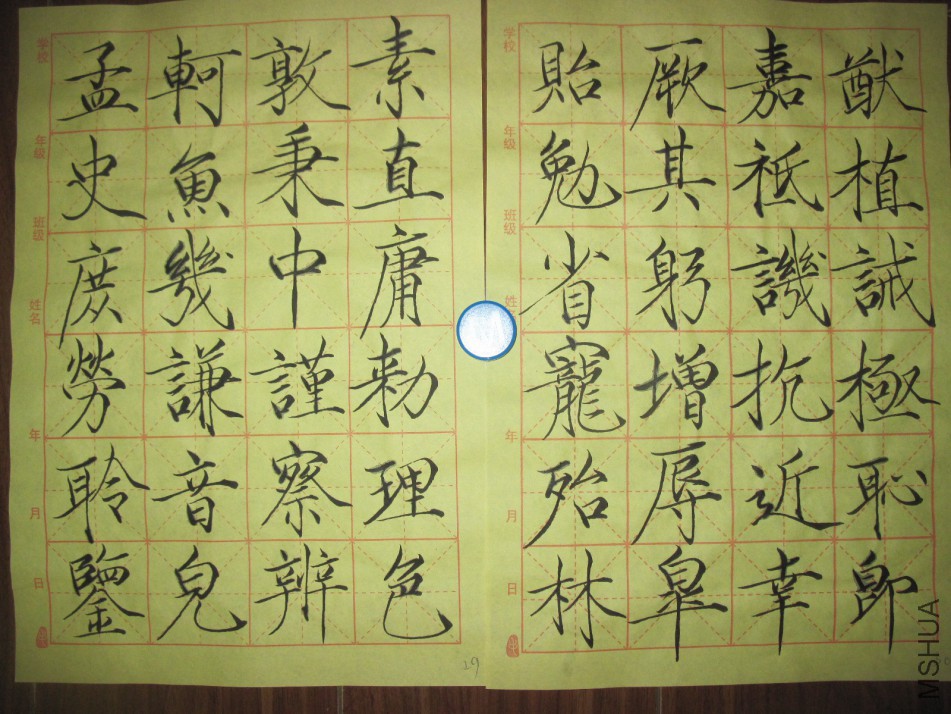 学校
孟軻敦素
年级
史魚秉直
班级
庶幾中庸
姓名
勞謙謹勅
年
聆音察理
月
鑒皃辨色
日
29
学校
貽厥嘉猷
年级
勉其祗植
班级
省躬譏誡
姓
寵增抗極
年
殆辱近恥
月
林皐幸即
日
MSHUA